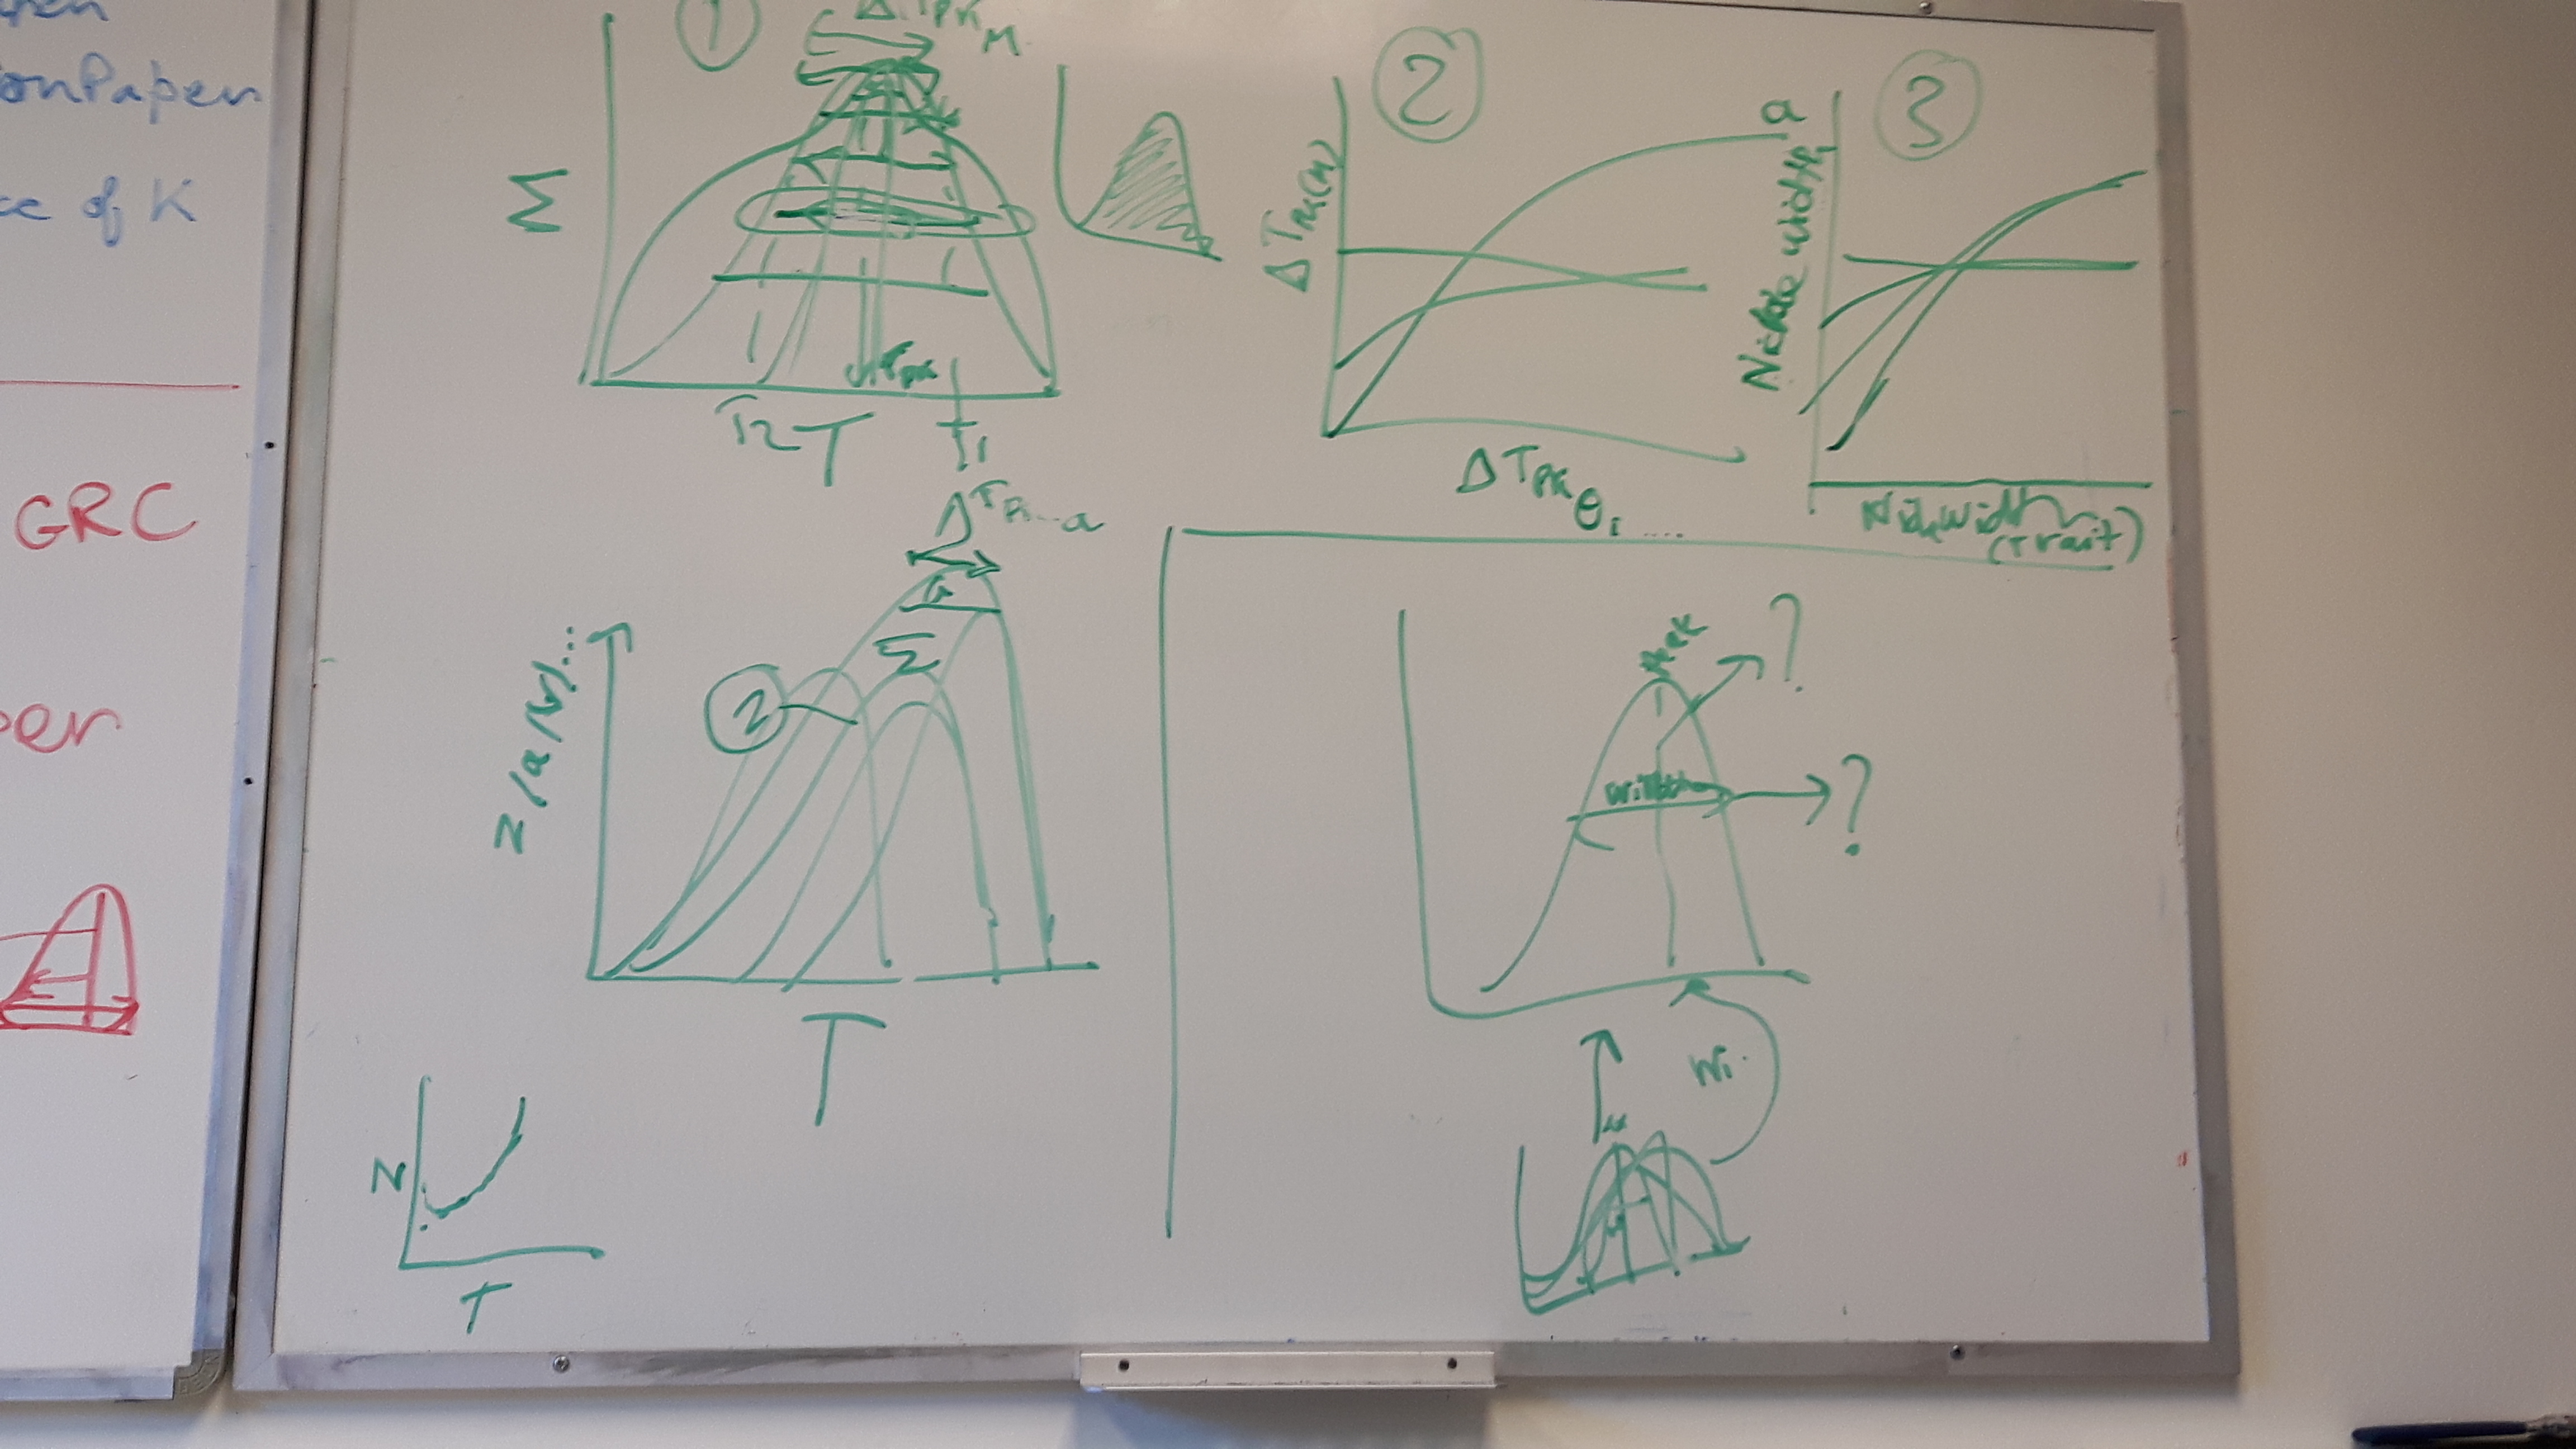 onPaper
ce of K
GRC
per
1
Δ TPK M
M
TPK
T2 T T1
2
Δ TPK(M)
a
Δ TPK θi ....
3
Niche width
Niche width
(Trait)
Z/a/b/...
2
T
Z
T
Peak
?
width
?
Wi